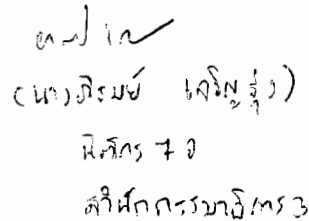 (นางภิรมย์ เจริญรุ่ง)
นิติกร ๗ ว
สำนักกรรมาธิการ ๓